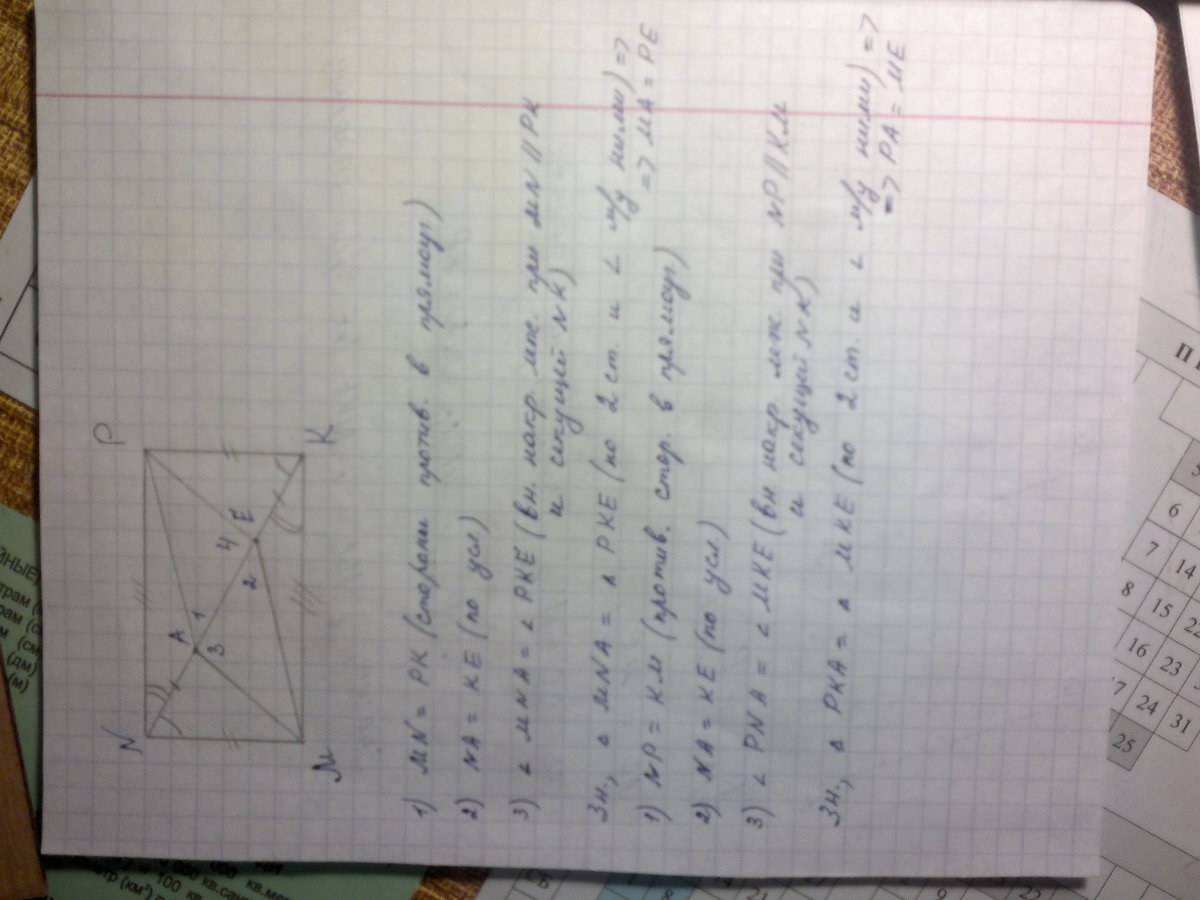 N
P
A
1
3
4
E
2
M
K
1) MN = PK (стороны против. в прямоуг.)
2) NA = KE (по усл)
3) ∠ MNA = ∠ PKE (вн. накр. леж. при MN // PK
и секущей NK)
Зн., △ MNA = △ PKE (по 2 ст. и ∠ м/у ними) =>
=> MA = PE
1) NP = KM (против. стор. в прямоуг.)
2) NA = KE (по усл)
3) ∠ PNA = ∠ MKE (вн. накр. леж. при NP // KM
и секущей NK)
Зн., △ PKA = △ MKE (по 2 ст. и ∠ м/у ними) =>
=> PA = ME
5
6
7 14
8 15 22
16 23
17 24 31
25
СБ
(дм)
(м)
100 кв.